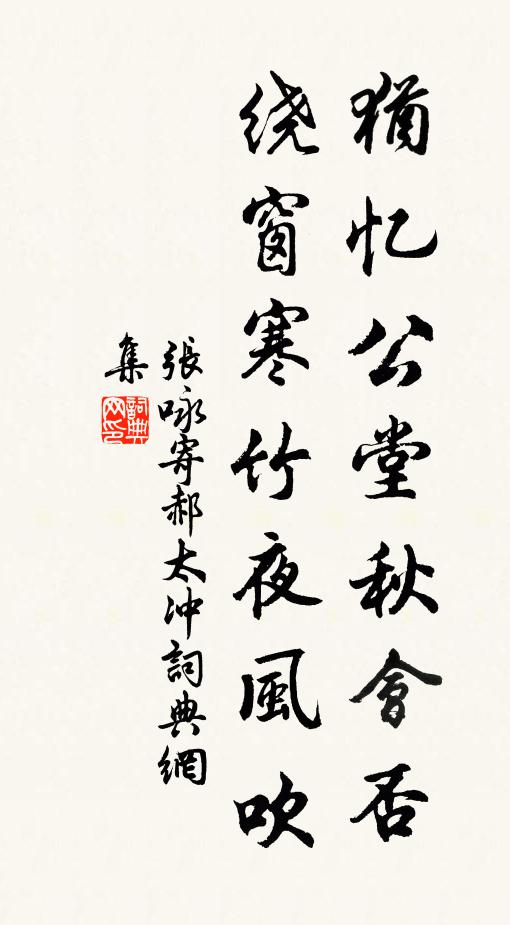 猶忆公堂秋會否
绕窗寒竹夜風吹
張咏寄郝太冲詞典網
集
詞典網印